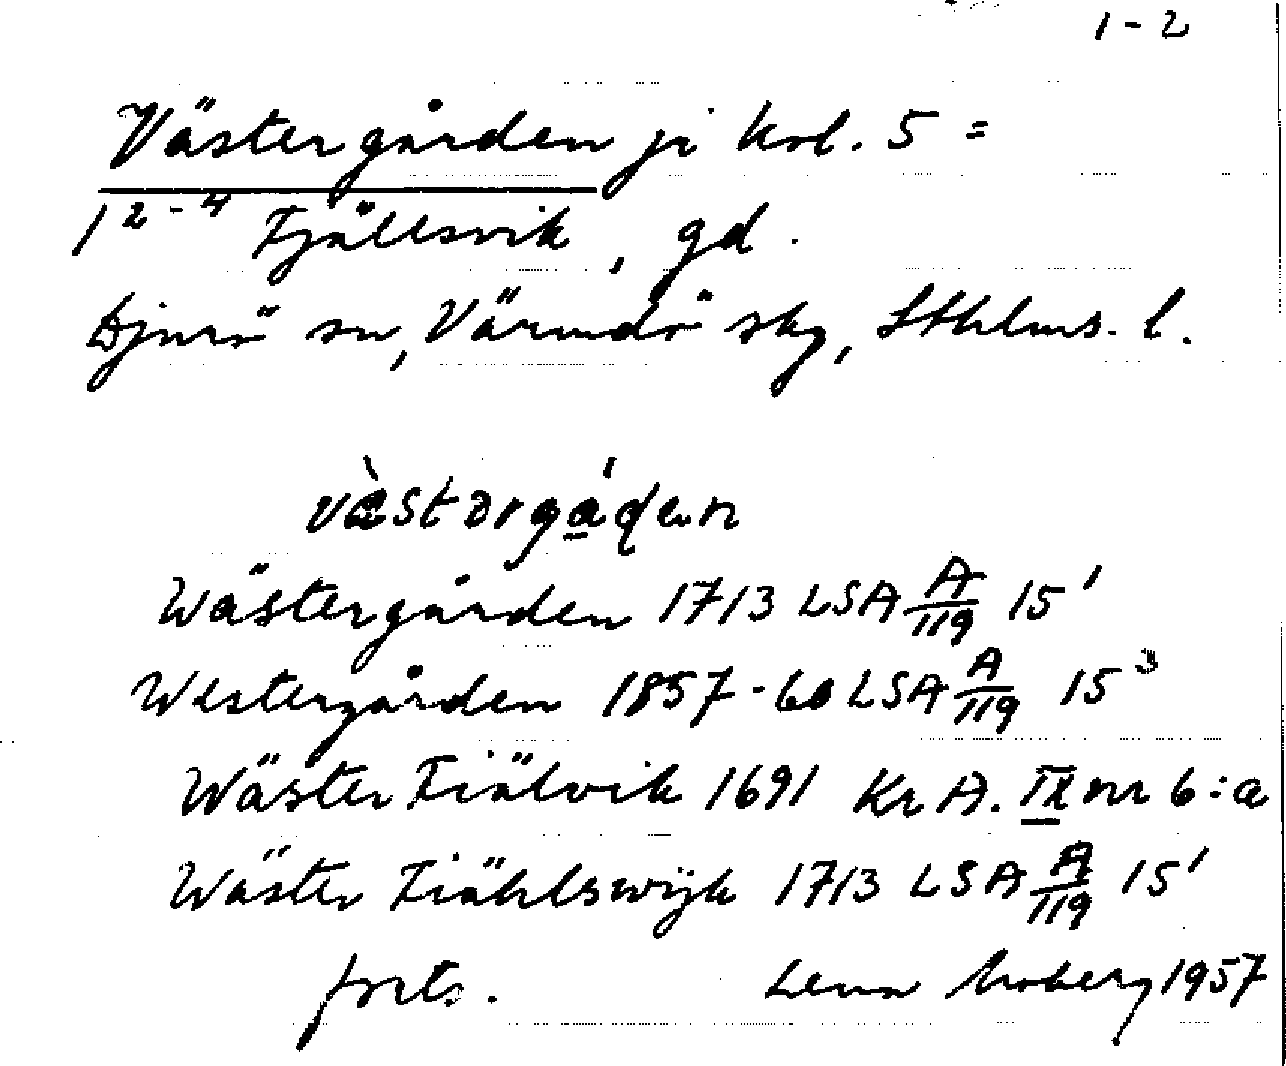 1-2
Västergården ji kol. 5 =
1²⁻⁴ Fjällsvik, gd.
Djurö sn, Värmdö skg, Sthlms. l.
vàstərgá̱den
Wästergården 1713 LSA A/119 15'
Westergården 1857-60 LSA A/119 15³
Wäster Fiälvik 1691 KrA. IX nr 6:a
Wäster Fiählswijk 1713 LSA A/119 15'
forts. Lena Moberg 1957